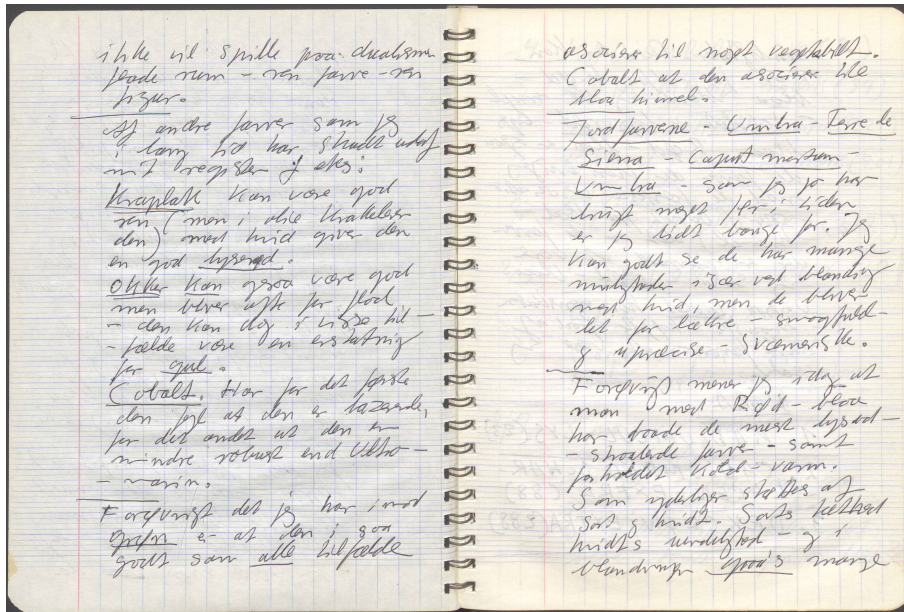 ikke vil spille paa dualismen
flade rum - ren farve - ren
figur.
Af andre farver som jeg
i lang tid har strudt udaf
mit register f eks:
Kraplak Kan være god
ren (men i olie Krakelerer
den) med hvid giver den
en god lyserød.
Okker Kan ogsaa være god
men bliver ofte for flad
- den Kan dog i visse til-
- fælde være en erstatning
for gul.
Cobalt. Har for det første
den fejl at den er lazerende,
for det andet at den er
mindre robust end Ultra-
- marin.
Forøvrigt det jeg har imod
grøn er at den i saa
godt som alle tilfælde
asocierer til noget vegetabilt.
Cobalt at den asocierer til
blaa himmel.
Jordfarvene - Umbra - Terre de
Siena - Caput mortum -
Umbra - som jeg jo har
brugt noget før i tiden
er jeg lidt bange for. Jeg
Kan godt se de har mange
muligheder især ved blanding
med hvid, men de bliver
let for lækre - smagfuld-
g upræcise - Sværmeriske.
Forøvrigt mener jeg idag at
man med Rød - blaa
har baade de mest lysud-
- straalende farver - samt
forholdet Kold - varm.
Som yderliger støttes af
Sort g hvidt. Sorts tæthed
hvidt's uendelighed - g i
blandingen graa's mange